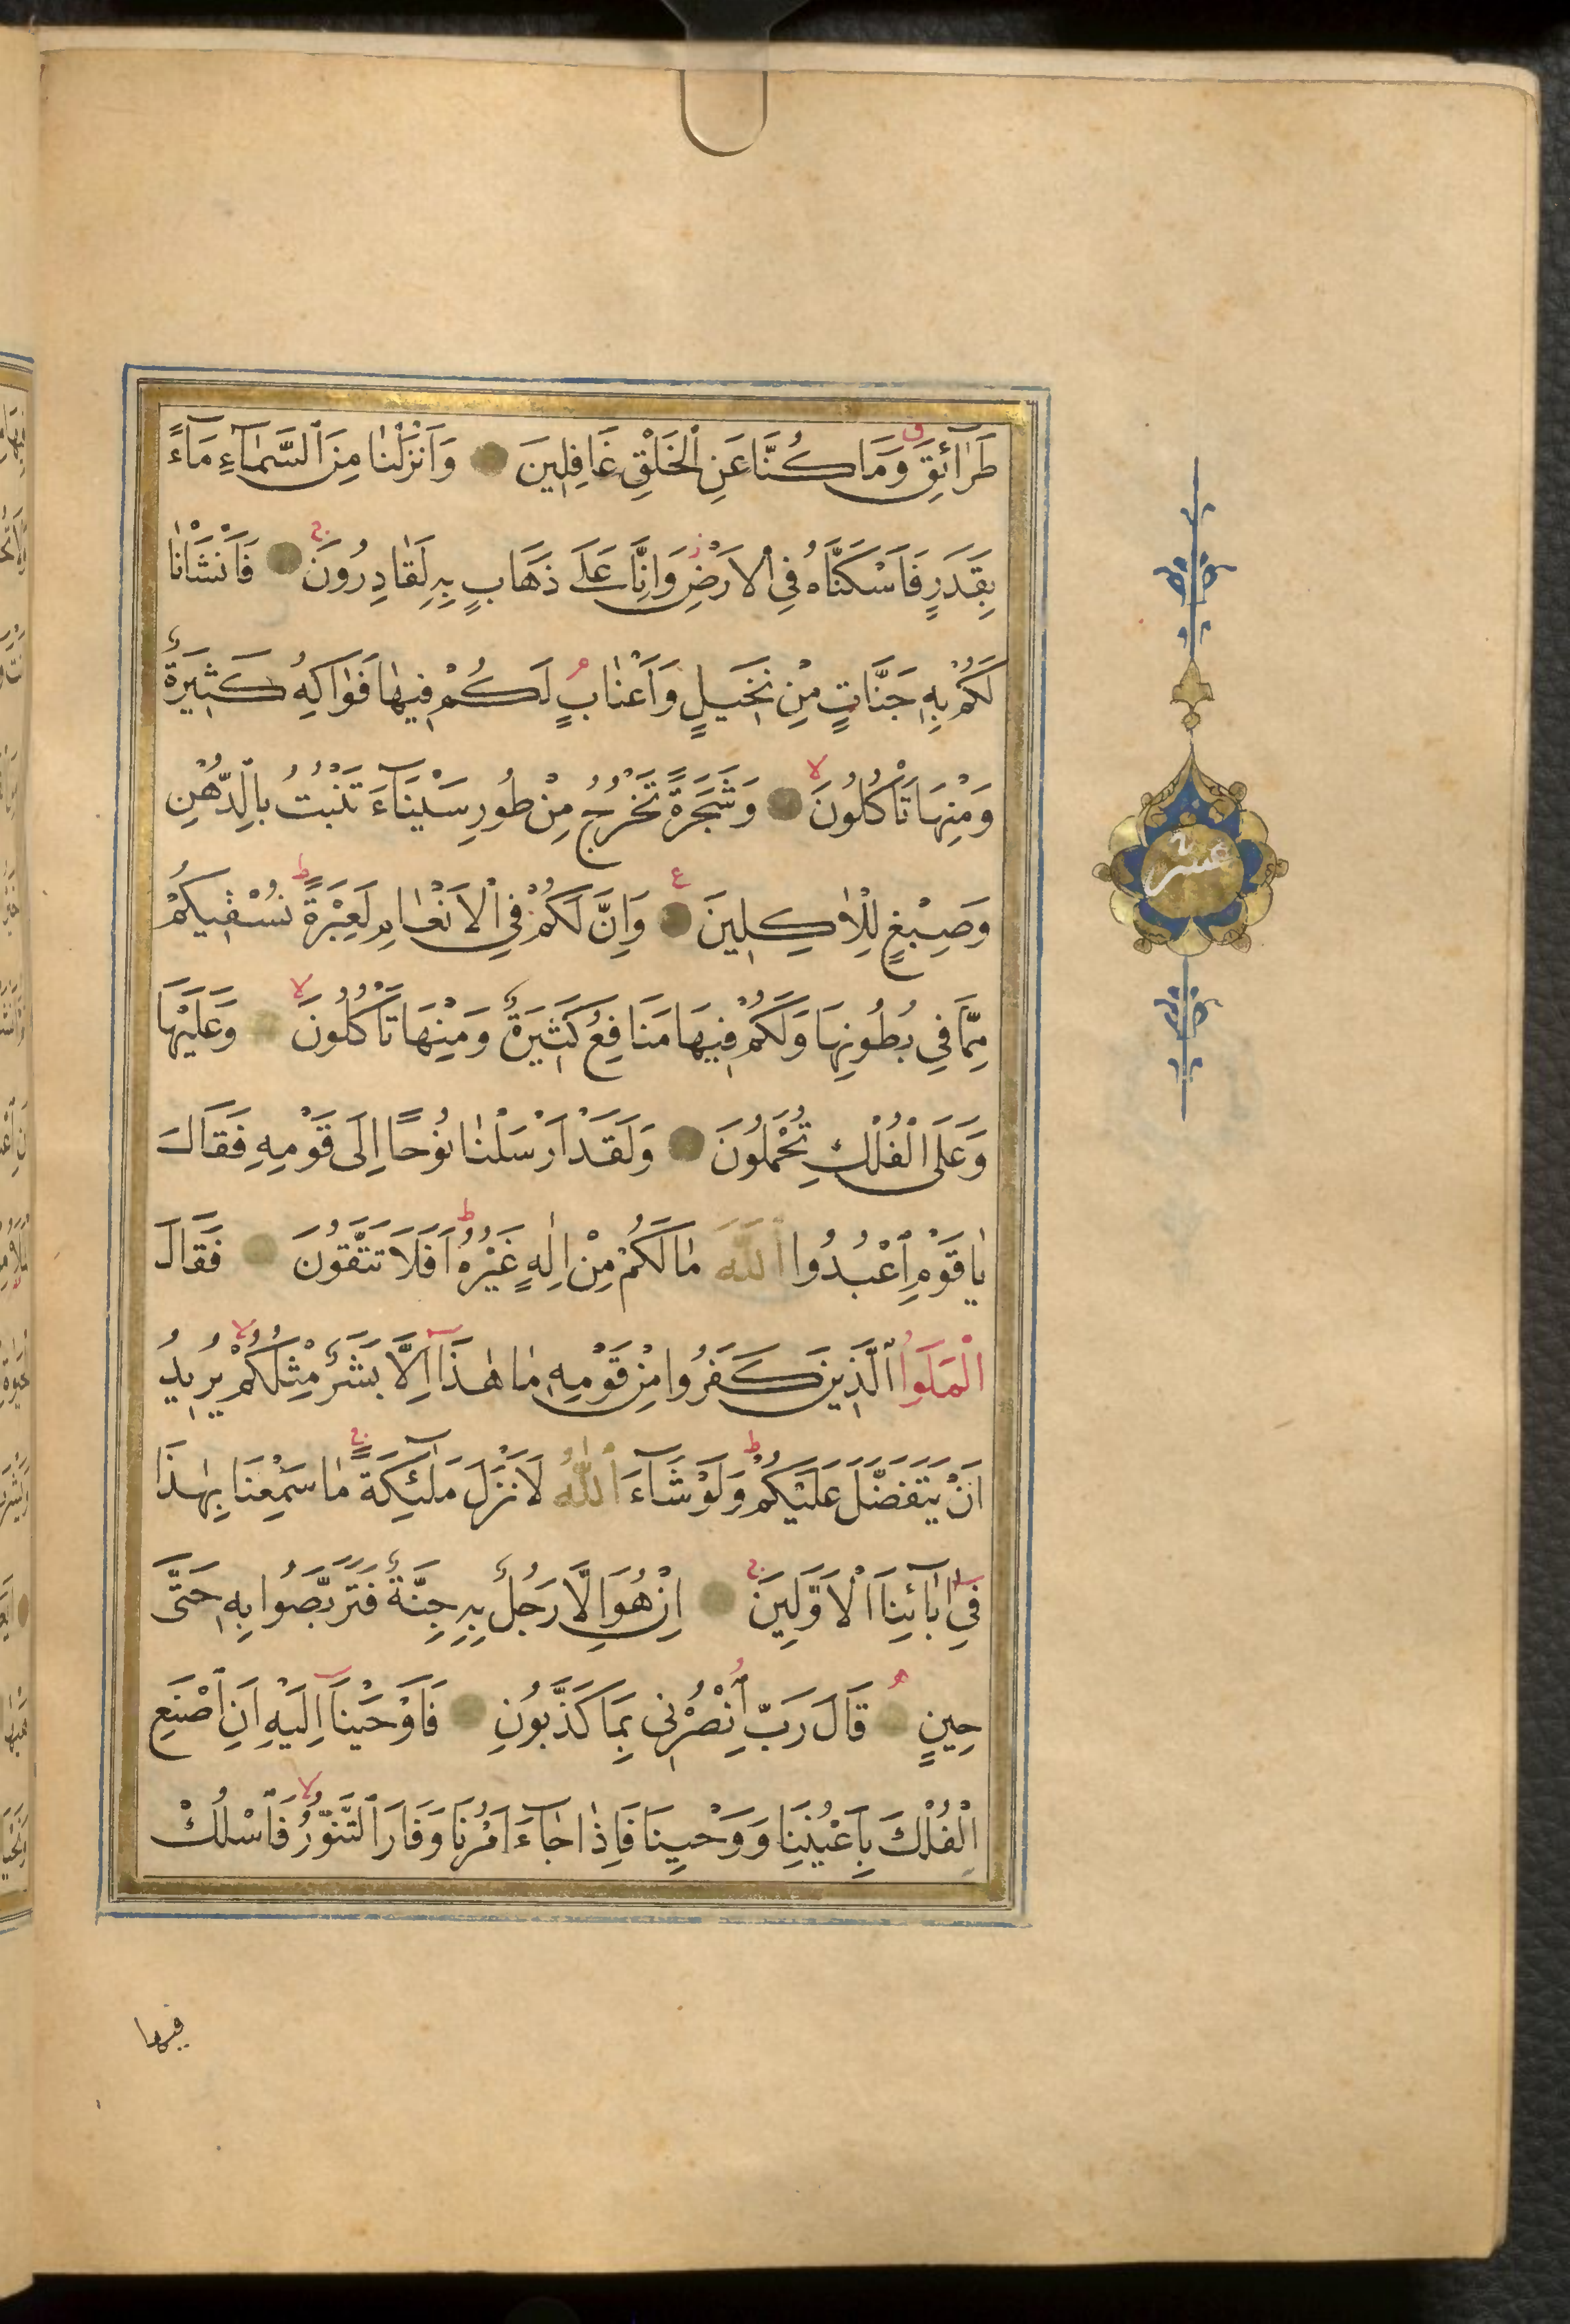 طَرَآئِقَ وَمَا كُنَّا عَنِ ٱلْخَلْقِ غَافِلِينَ وَاَنْزَلْنٰا مِنَ ٱلسَّمٰآءِ مَآءً
بِقَدَرٍ فَاَسْكَنَّاهُ فِي ٱلْاَرْضِ وَاِنَّا عَلَى ذَهَابٍ بِهِ لَقٰادِرُونَ فَاَنْشَاْنٰا
لَكُمْ بِهِ جَنَّاتٍ مِنْ نَخِيلٍ وَاَعْنٰابٍ لَكُمْ فِيهٰا فَوٰاكِهُ كَثِيرَةٌ
وَمِنْهَا تَاْكُلُونَ وَشَجَرَةً تَخْرُجُ مِنْ طُورِ سَيْنَآءَ تَنْبُتُ بِالدُّهْنِ
وَصِبْغٍ لِلْاٰكِلِينَ وَاِنَّ لَكُمْ فِي ٱلْاَنْعٰامِ لَعِبْرَةً نُسْقِيكُمْ
مِمَّا فِي بُطُونِهَا وَلَكُمْ فِيهَا مَنَافِعُ كَثِيرَةٌ وَمِنْهَا تَاْكُلُونَ وَعَلَيْهَا
وَعَلَى ٱلْفُلْكِ تُحْمَلُونَ وَلَقَدْ اَرْسَلْنٰا نُوحًا اِلَى قَوْمِهِ فَقَالَ
يٰا قَوْمِ ٱعْبُدُوا ٱللّٰهَ مٰا لَكُمْ مِنْ اِلٰهٍ غَيْرُهُ اَفَلَا تَتَّقُونَ فَقَالَ
ٱلْمَلَوُا ٱلَّذِينَ كَفَرُوا مِنْ قَوْمِهِ مٰا هٰذَآ اِلَّا بَشَرٌ مِثْلُكُمْ يُرِيدُ
اَنْ يَتَفَضَّلَ عَلَيْكُمْ وَلَوْ شَآءَ ٱللّٰهُ لَاَنْزَلَ مَلٰٓئِكَةً مٰا سَمِعْنَا بِهٰذَا
فِي اٰبَآئِنَا ٱلْاَوَّلِينَ اِنْ هُوَ اِلَّا رَجُلٌ بِهِ جِنَّةٌ فَتَرَبَّصُوا بِهِ حَتَّى
حِينٍ قَالَ رَبِّ ٱنْصُرْنِي بِمَا كَذَّبُونِ فَاَوْحَيْنَآ اِلَيْهِ اَنِ ٱصْنَعِ
ٱلْفُلْكَ بِاَعْيُنِنَا وَوَحْيِنَا فَاِذٰا جٰآءَ اَمْرُنَا وَفَارَ ٱلتَّنُّورُ فَٱسْلُكْ
عشر
فيها